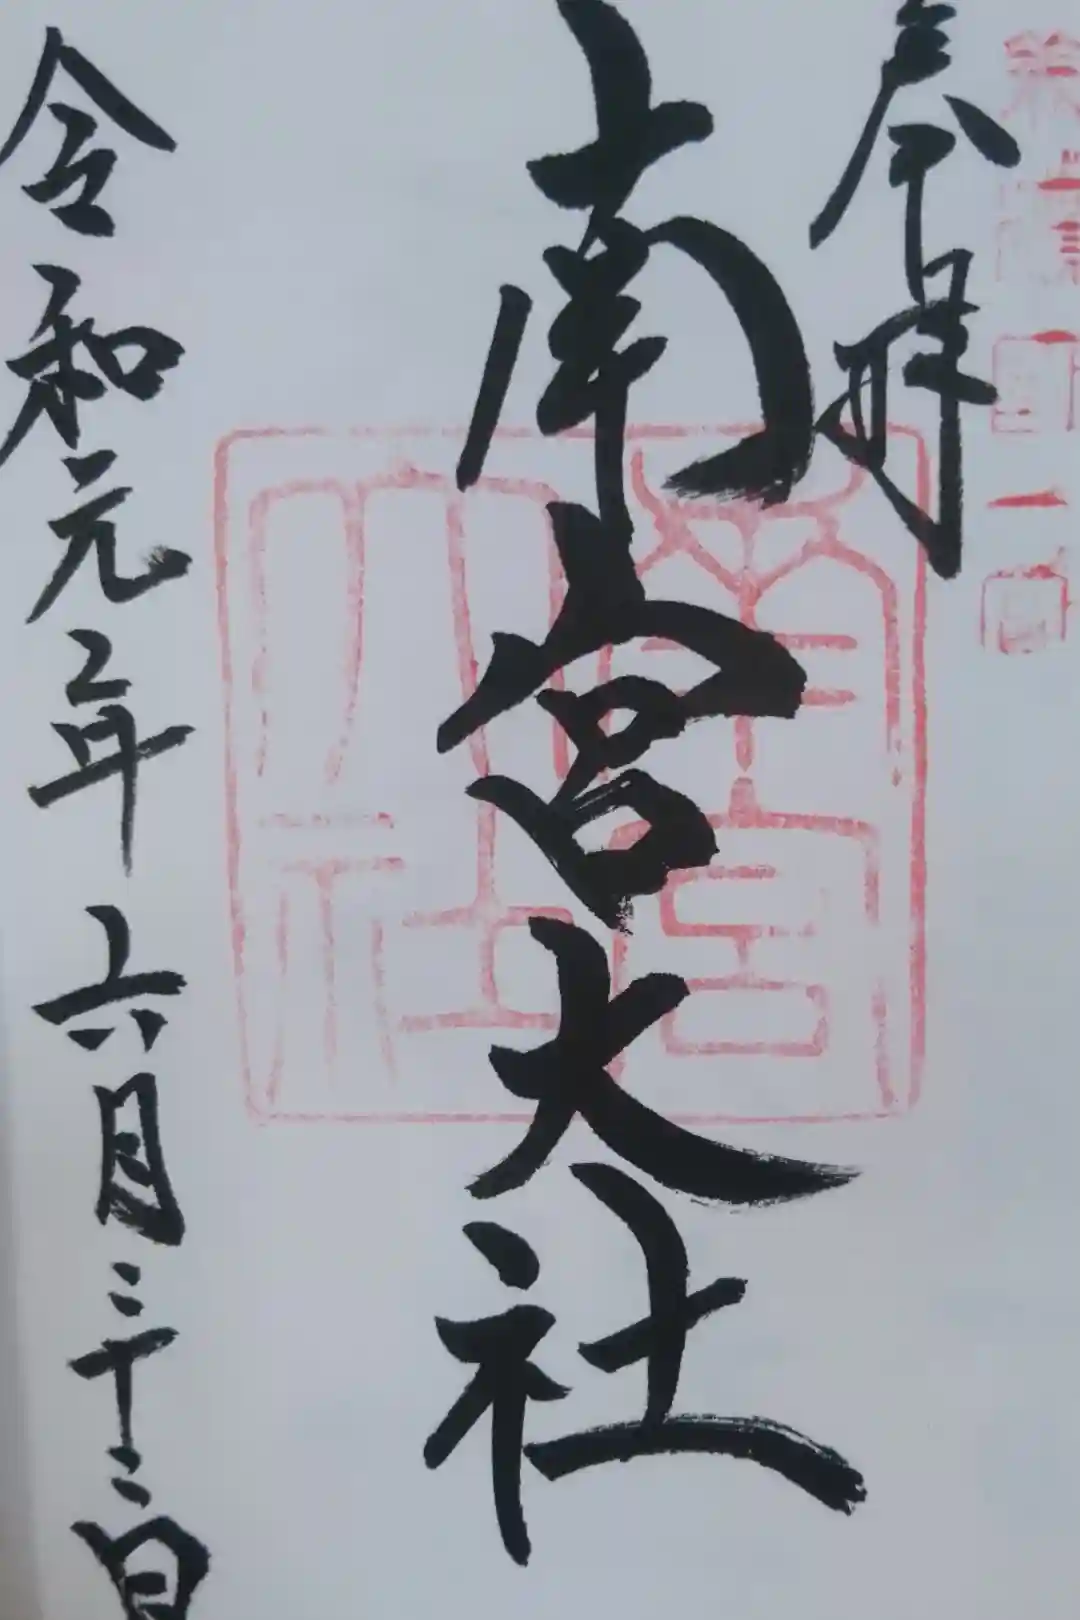 美濃國一宮
奉拝
南宮大社
南宮大社
令和元年六月二十二日